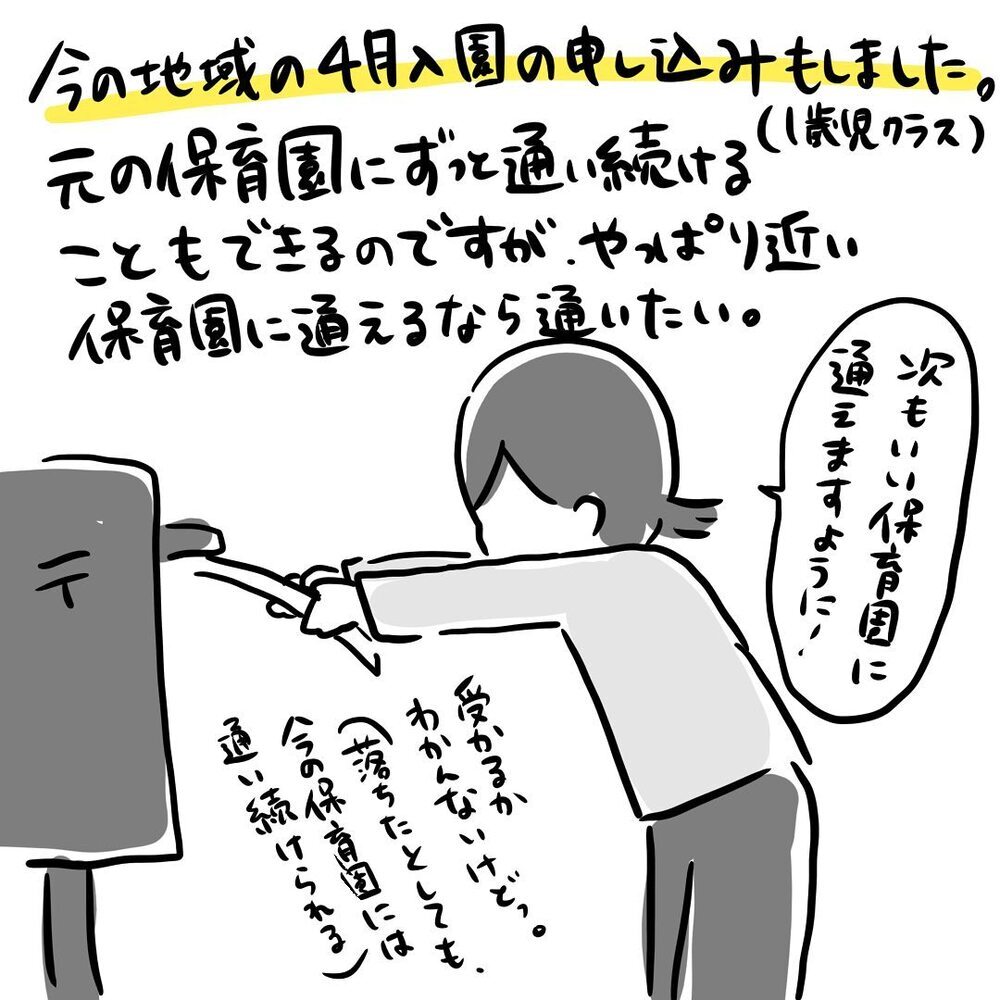 今の地域の4月入園の申し込みもしました。
(1歳児クラス)
元の保育園にずっと通い続ける
こともできるのですが、やっぱり近い
保育園に通えるなら通いたい。
次もいい保育園に
通えますように！
受かるか
わかんないけどっ。
(落ちたとしても、
今の保育園には
通い続けられる)
〒